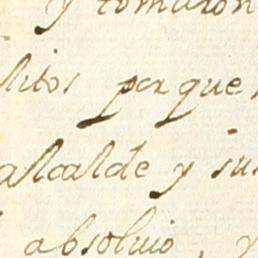 y tomaron
litos porque
alcalde y sus
absolvio, y